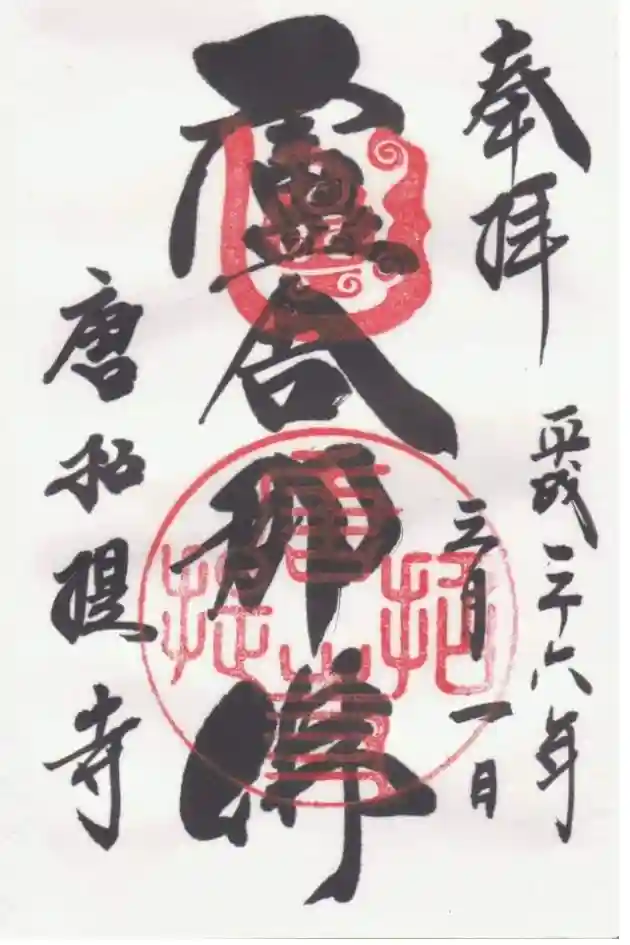 奉拝
平成二十六年
三月一日
盧舎那佛
唐招提寺
唐招提寺